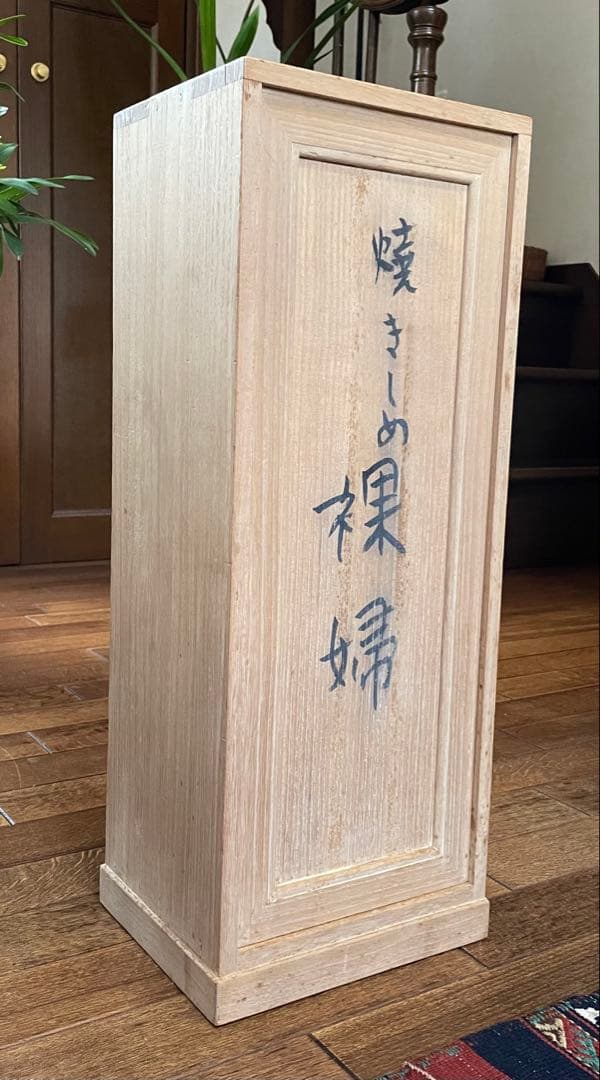 焼きしめ
裸婦